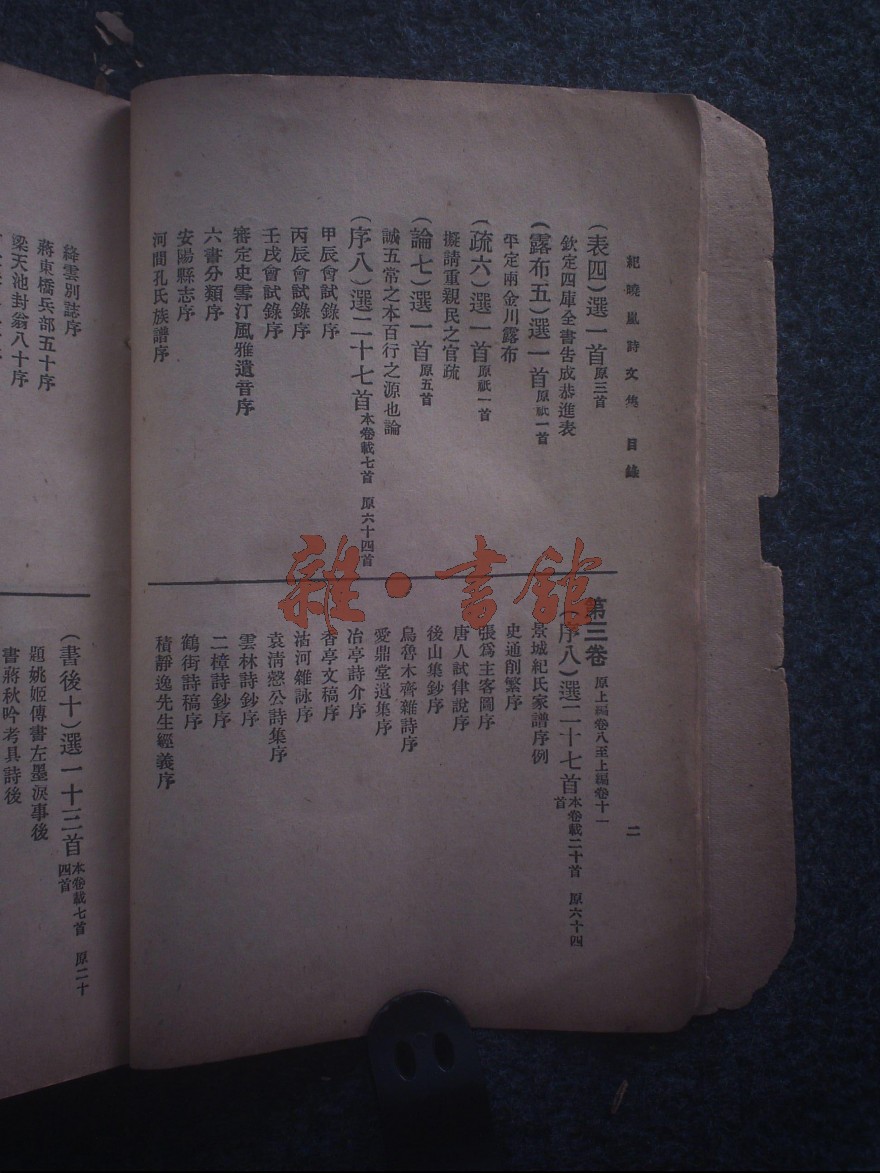 紀曉嵐詩文集 目錄 二
(表四)選一首原三首
欽定四庫全書告成恭進表
(露布五)選一首原祇一首
平定兩金川露布
(疏六)選一首原祇一首
擬請重親民之官疏
(論七)選一首原五首
誠五常之本百行之源也論
(序八)選二十七首本卷載七首 原六十四首
甲辰會試錄序
丙辰會試錄序
壬戌會試錄序
審定史雪汀風雅遺音序
六書分類序
安陽縣志序
河間孔氏族譜序
第三卷 原上編卷八至上編卷十一
(序八)選二十七首本卷載二十首 原六十四首
景城紀氏家譜序例
史通削繁序
張爲主客圖序
唐人試律說序
後山集鈔序
烏魯木齊雜詩序
愛鼎堂遺集序
冶亭詩介序
香亭文稿序
沽河雜詠序
袁清慤公詩集序
雲林詩鈔序
二樟詩鈔序
鶴街詩稿序
積靜逸先生經義序
絳雲別誌序
蔣東橋兵部五十序
梁天池封翁八十序
(書後十)選一十三首本卷載七首 原二十四首
題姚姬傳書左墨淚事後
書蔣秋吟考具詩後
雜·書館